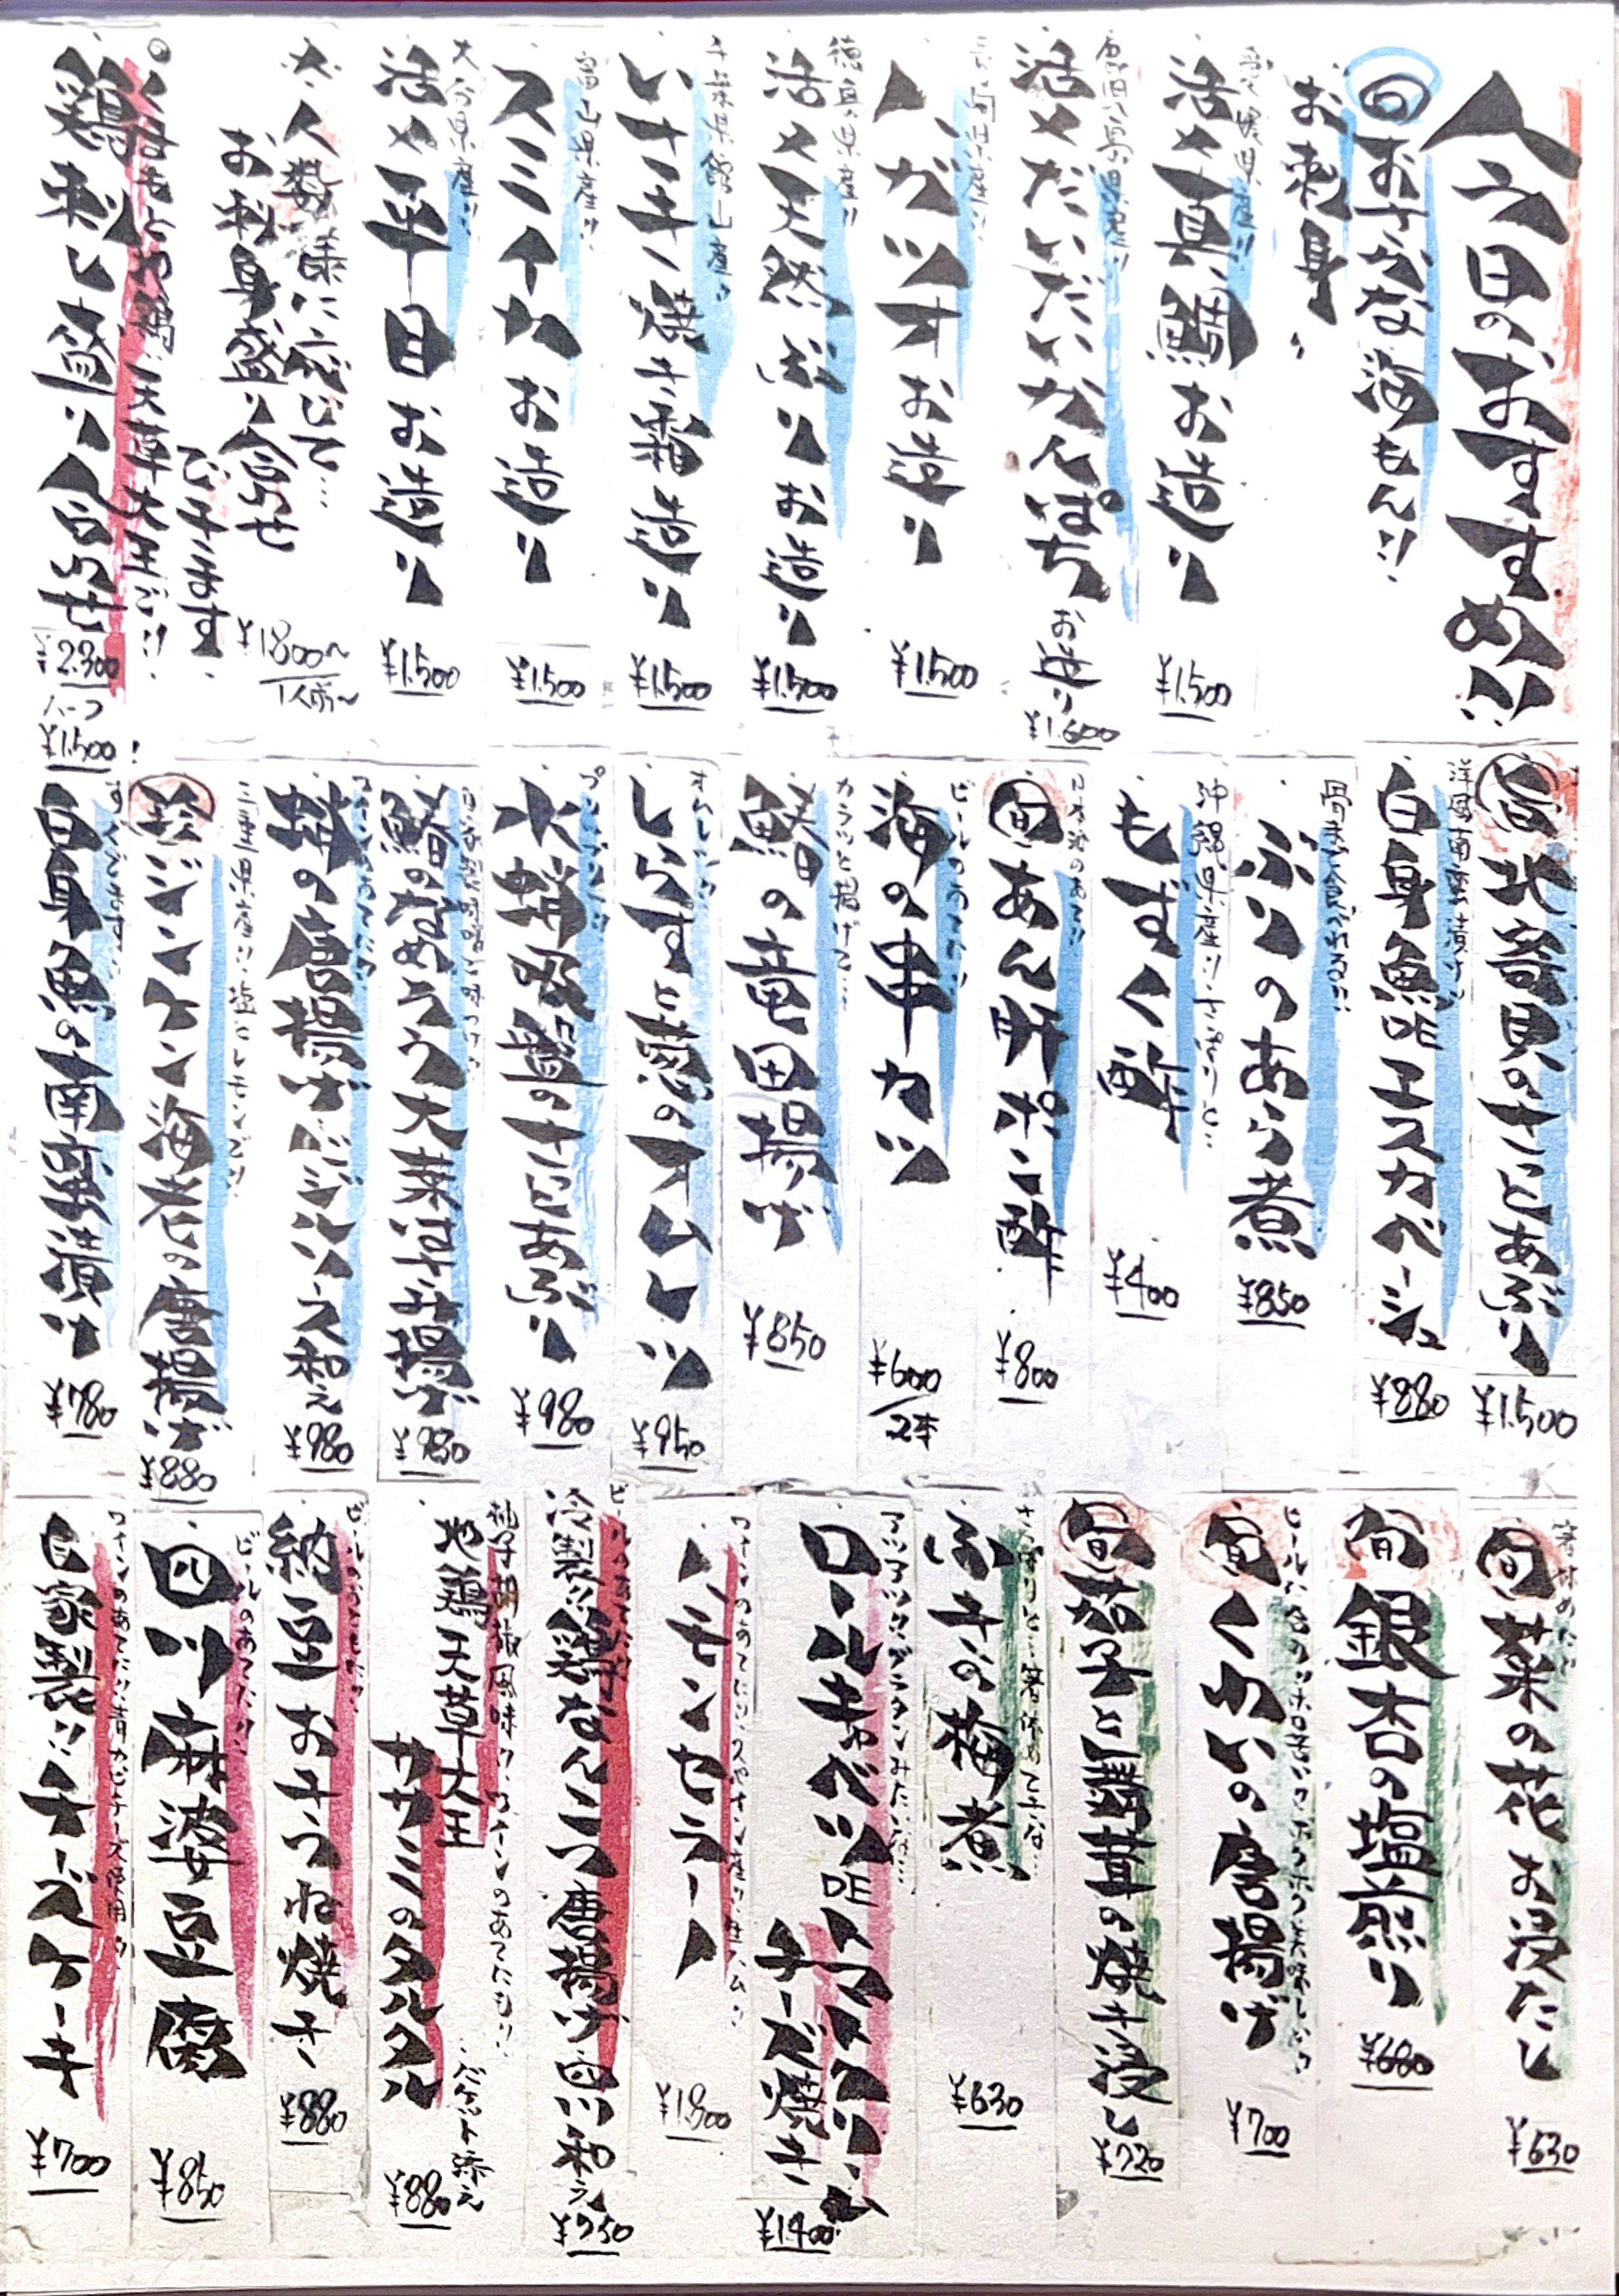 今日のおすすめ!!
旬おさかな海もん!!
お刺身
愛媛県産!!
活〆真鯛お造り
¥1.500
活〆だいだいかんぱち
お造り
¥1.600
カツオお造り
¥1.500
徳島県産!!
活〆天然ぶりお造り
¥1.500
千葉県館山産!!
いサキノ焼き霜造り
¥1.500
富山県産!!
スミイカお造り
¥1.500
大分県産!!
活〆平目お造り
¥1.500
人数様に応じて…
お刺身盛り合わせ
できます
¥1800〜
1人前〜
天草大王で!!
鶏刺し盛り合わせ
¥2.300
ハーフ
¥1.500
北寄貝のさっとあぶり
¥1.500
洋風南蛮漬け!!
白身魚DEエスカベーシュ
¥880
骨まで食べれる!!
ぶりのあら煮
¥850
沖縄県産!!さっぱりと…
もずく酢
¥400
日本酒のあて!!
旬あん肝ポン酢
¥800
ビールのあてに!!
海の串カツ
¥600
2本
カラッと揚げて…
鰆の竜田揚げ
¥850
しらすと葱のオムレツ
¥850
プリップリ!!
水蛸吸盤のさっとあぶり
¥980
鰆のなめろう大葉はさみ揚げ
¥980
ワインのあてに!!
蛸の唐揚げバジルソース和え
¥980
三重県産!!塩とレモンで!!
ジンケン海老の唐揚げ
¥880
すぐでます…
白身魚の南蛮漬け
¥780
箸休めに!!
旬菜の花お浸たし
¥630
旬銀杏の塩煎り
¥680
旬くわいの唐揚げ
¥700
旬茄子と舞茸の焼き浸し
¥720
さっぱりと…箸休めてきな…
ふきの梅煮
¥630
ロールキャベツDEトマトソース
チーズ焼き
¥1400
ハモンセラーノ
¥1.300
ビールのあてに!!
冷製!!鶏なんこつ唐揚げ四川和え
¥750
柚子胡椒風味!!ワインのあてにも!!
地鶏天草大王
ササミのタルタル
バケット添え
¥880
納豆おきつね焼き
¥880
ビールのあてに!!
四川麻婆豆腐
¥850
ワインのあてに!!青カビチーズ使用!!
自家製!!チーズケーキ
¥700